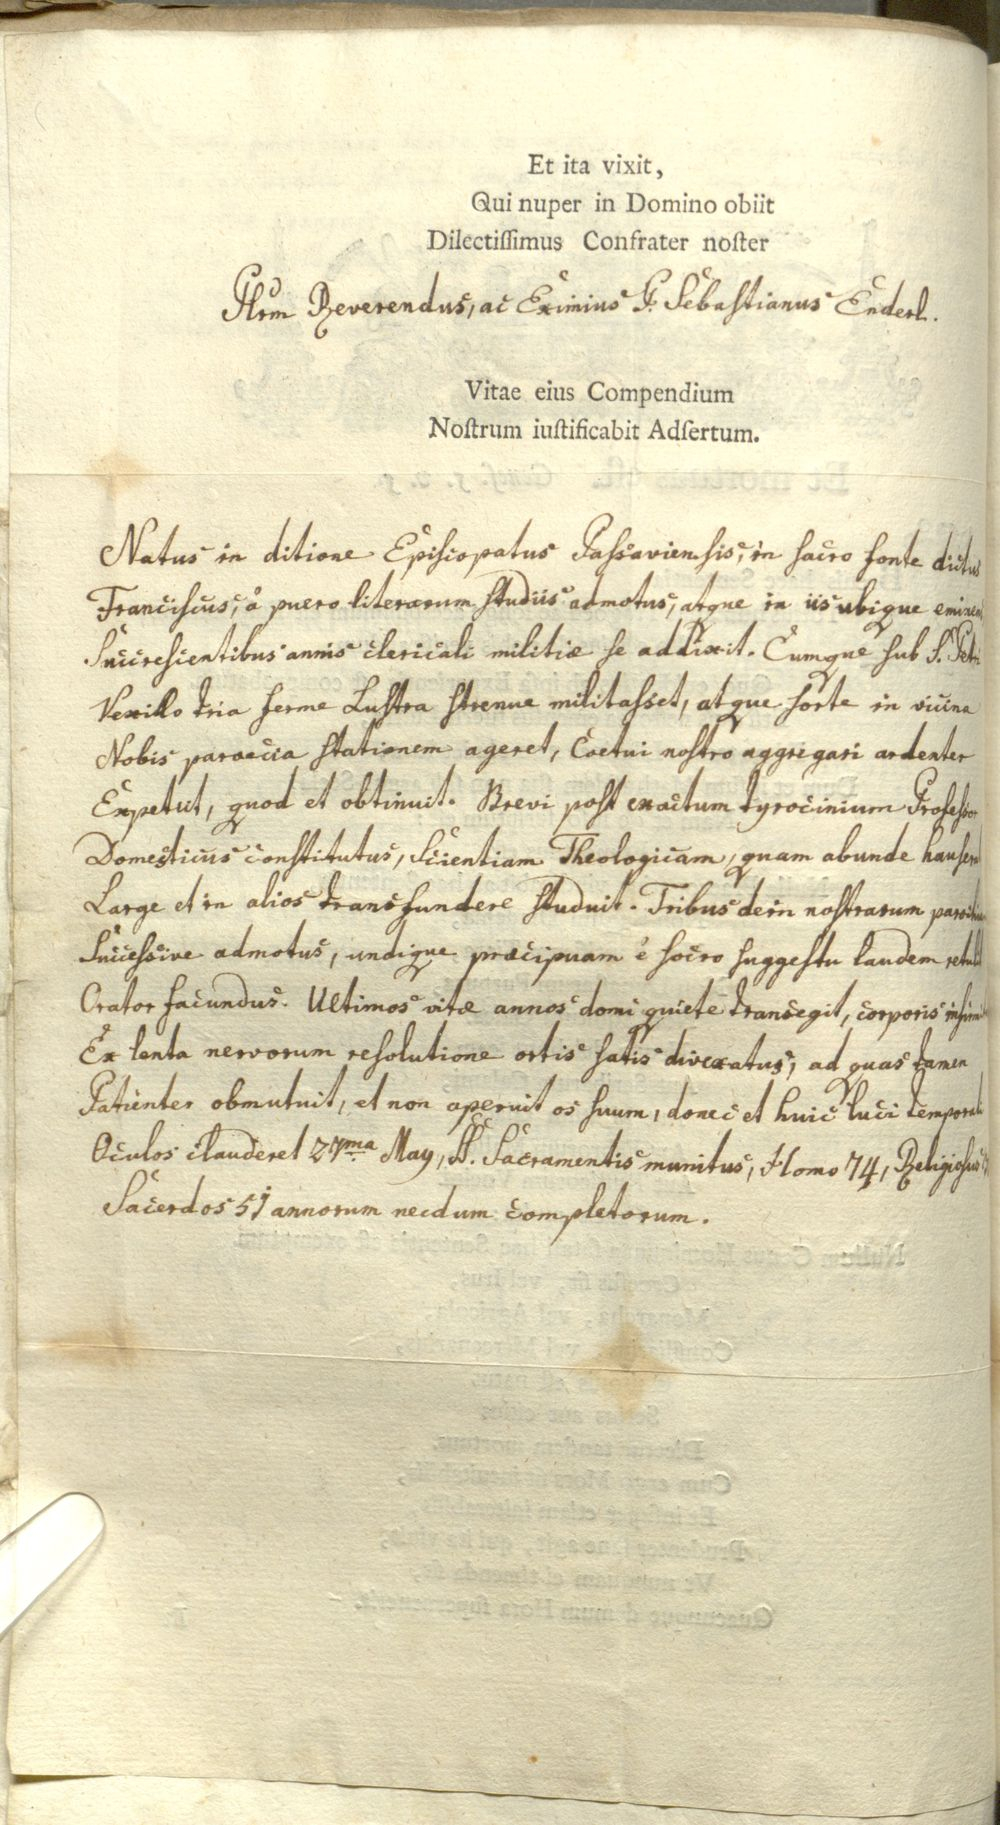 Et ita vixit,
Qui nuper in Domino obiit
Dilectiſſimus Confrater noſter
Plrm Reverendus, ac Eximius P. Sebastianus Enderl.
Vitae eius Compendium
Noſtrum iuſtificabit Adſertum.
Natus in ditione Episcopatus Passaviensis, in sacro fonte dictus
Franciscus, à puero literarum studiis admotus, atque in iis ubique eminens
Succrescentibus annis clericali militiæ se addixit. Cumque sub S. Petri
Vexillo tria ferme Lustra strenue militasset, atque forte in vicina
Nobis paroecia stationem ageret, Coetui nostro aggregari ardenter
Expetiit, quod et obtinuit. Brevi post exactum tyrocinium Professor
Domesticus constitutus, Scientiam Theologicam, quam abunde
Large et in alios transfundere studuit. Tribus dein nostrarum
Successive admotus, undique præcipuam è sacro suggestu laudem retulit
Orator facundus. Ultimos vitæ annos domi quiete transegit, corporis
Ex lenta nervorum resolutione ortis satis divexatus, ad quas tamen
Patienter obmutuit, et non aperuit os suum, donec et huic luci temporali
Oculos clauderet 27ma May, SS. Sacramentis munitus, Homo 74, Religiosus
Sacerdos 51 annorum necdum completorum.